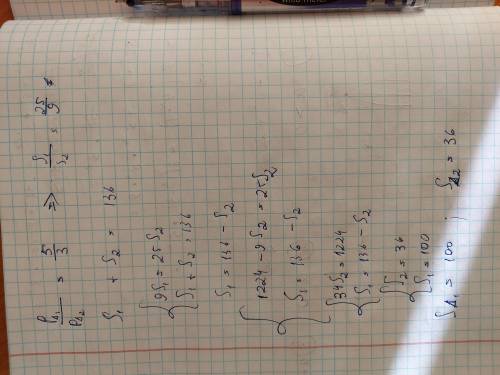 P△₁/P△₂ = 5/3 => S₁/S₂ = 25/9
S₁ + S₂ = 136
{ 9S₁ = 25S₂
S₁ + S₂ = 136
S₁ = 136 - S₂
{ 1224 - 9S₂ = 25S₂
S₁ = 136 - S₂
{ 34S₂ = 1224
S₁ = 136 - S₂
{ S₂ = 36
S₁ = 100
S△₁ = 100 ; S△₂ = 36